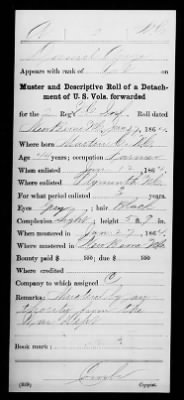 N.C.
Appears with rank of
Muster and Descriptive Roll of a Detach-
ment of U. S. Vols. forwarded
for the 2 Reg't N C Inf. Roll dated
New Berne N.C. Jan 27, 1864.
Where born Martin C. N.C.
Age 44 years; occupation Farmer
When enlisted Jan 12, 1864.
Where enlisted Plymouth N.C.
For what period enlisted years.
Eyes Gray; hair Black
Complexion Light; height 5 ft. 9 in.
When mustered in Jan 27, 1864.
Where mustered in New Berne N.C.
Bounty paid $ 100; due $ 100
Where credited
Company to which assigned C
Remarks: Mustered by au-
thority from the
War Dept.
Book mark:
Copyist.